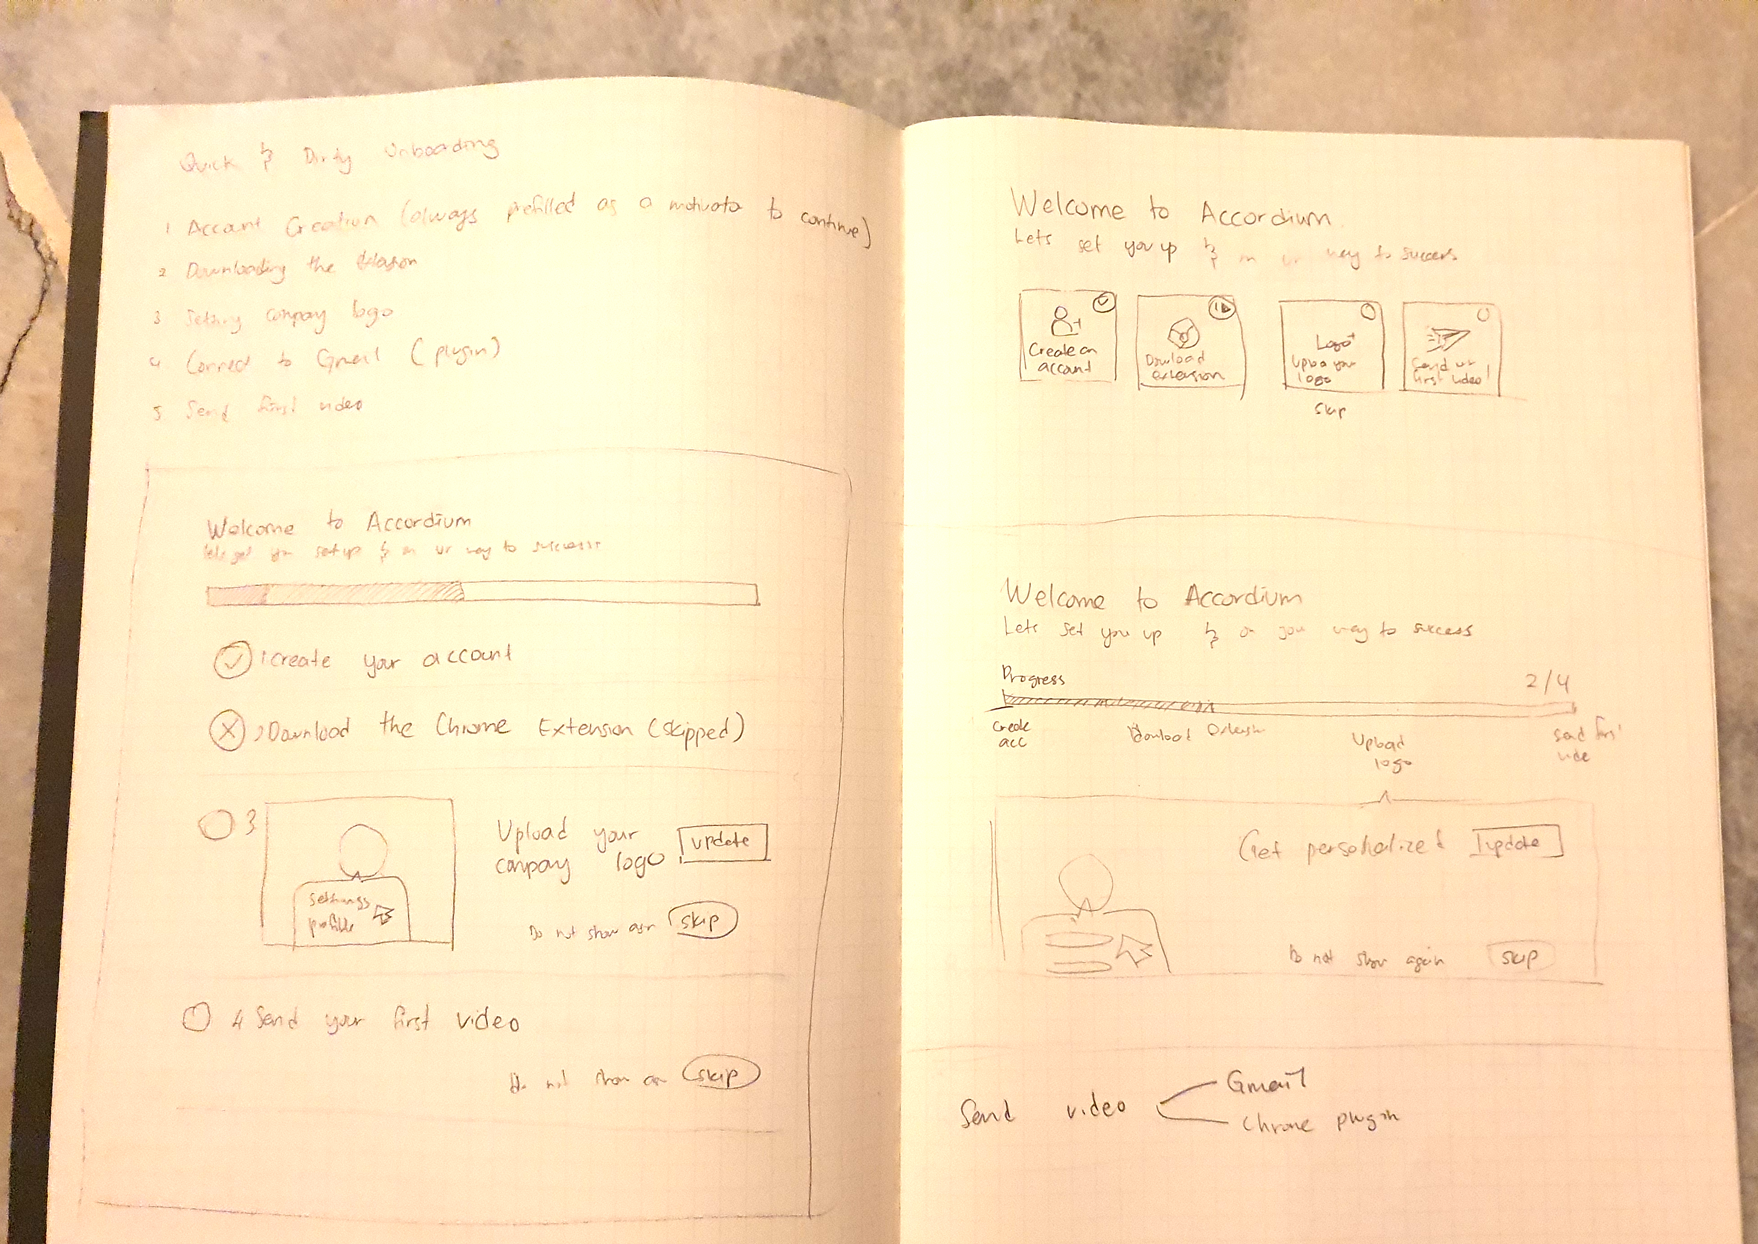 Quick & Dirty Onboarding
1 Account Creation (always prefilled as a motivator to continue)
2 Downloading the
3 Setting conpay logo
4 Connect to Gmail (plugin)
5 Send first video
Welcome to Accordium
lets get you set up & on ur way to success
1 Create your account
2 Download the Chrome Extension (skipped)
3
settings
profile
Upload your
conpay logo
update
Do not show
skip
4 Send your first video
Do not show
skip
Welcome to Accordium
Lets set you up & on ur way to success
Create an
account
Download
extension
Logo
Upload your
logo
skip
Send ur
first video!
Welcome to Accordium
Lets set you up & on your way to success
Progress
2/4
Create
acc
Download
Upload
logo
Send first
Get personalized
update
Do not show again
skip
Send video
Gmail
Chrome plugin